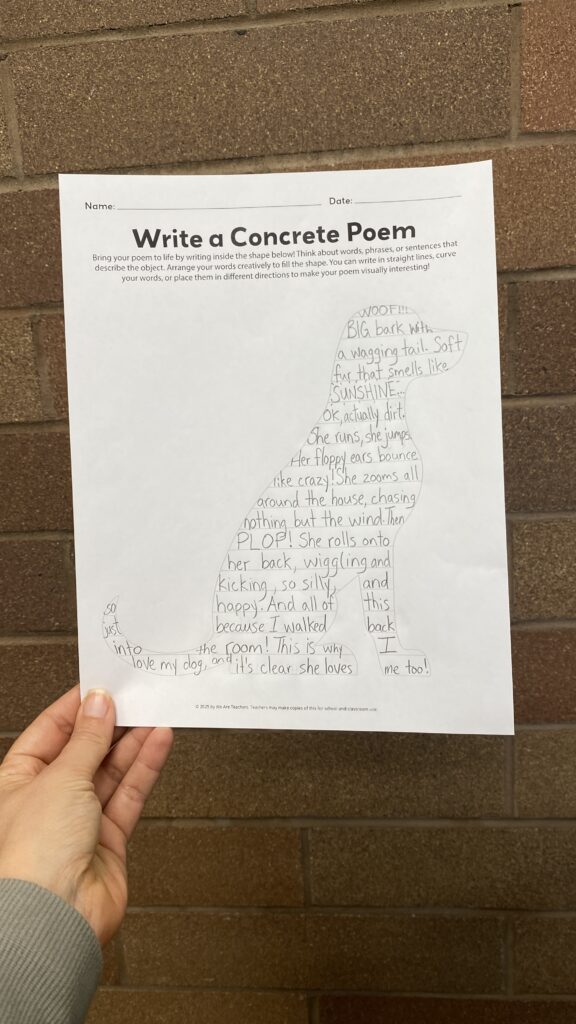 Name: Date:
Write a Concrete Poem
Bring your poem to life by writing inside the shape below! Think about words, phrases, or sentences that
describe the object. Arrange your words creatively to fill the shape. You can write in straight lines, curve
your words, or place them in different directions to make your poem visually interesting!
WOOF!!!
BIG bark with
a wagging tail. Soft
fur that smells like
SUNSHINE...
Ok, actually dirt.
She runs, she jumps.
Her floppy ears bounce
like crazy! She zooms all
around the house, chasing
nothing but the wind. Then
PLOP! She rolls onto
her back, wiggling and
kicking, so silly, and
so happy. And all of this
just because I walked back
into the room! This is why I
love my dog, and it's clear she loves me too!
© 2025 by We Are Teachers. Teachers may make copies of this for school and classroom use.